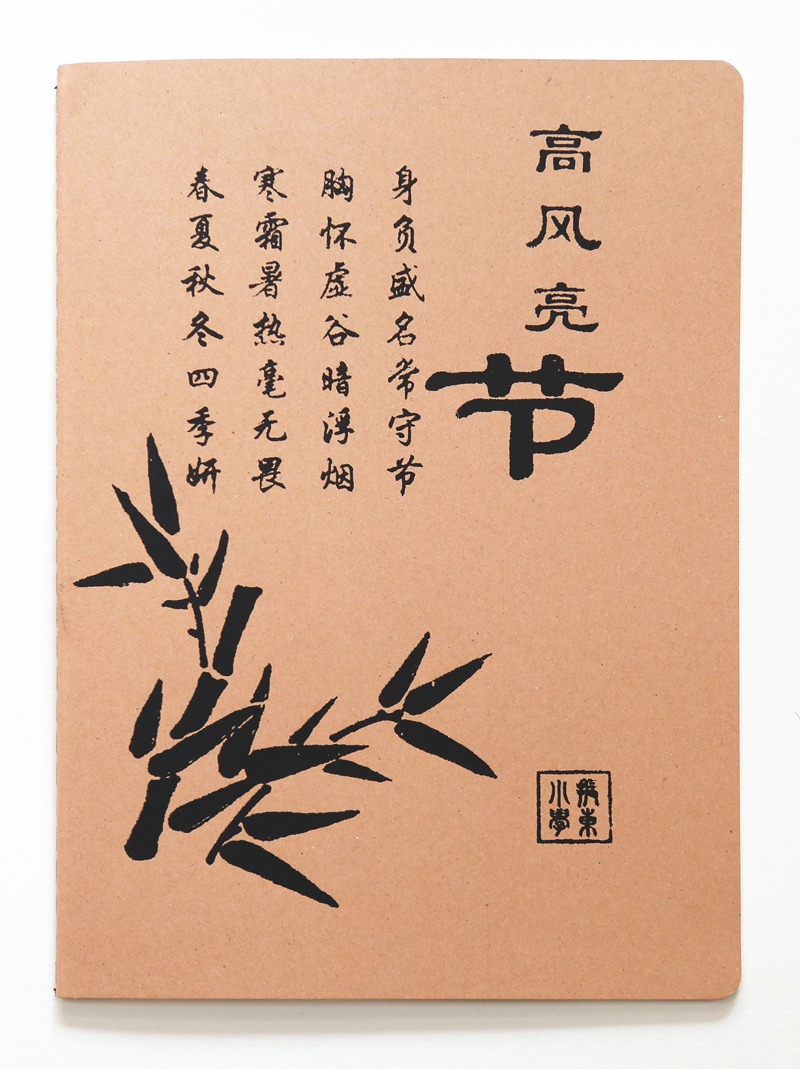 高风亮节
身负盛名常守节
胸怀虚谷暗浮烟
寒霜暑热毫无畏
春夏秋冬四季妍
般东
小學